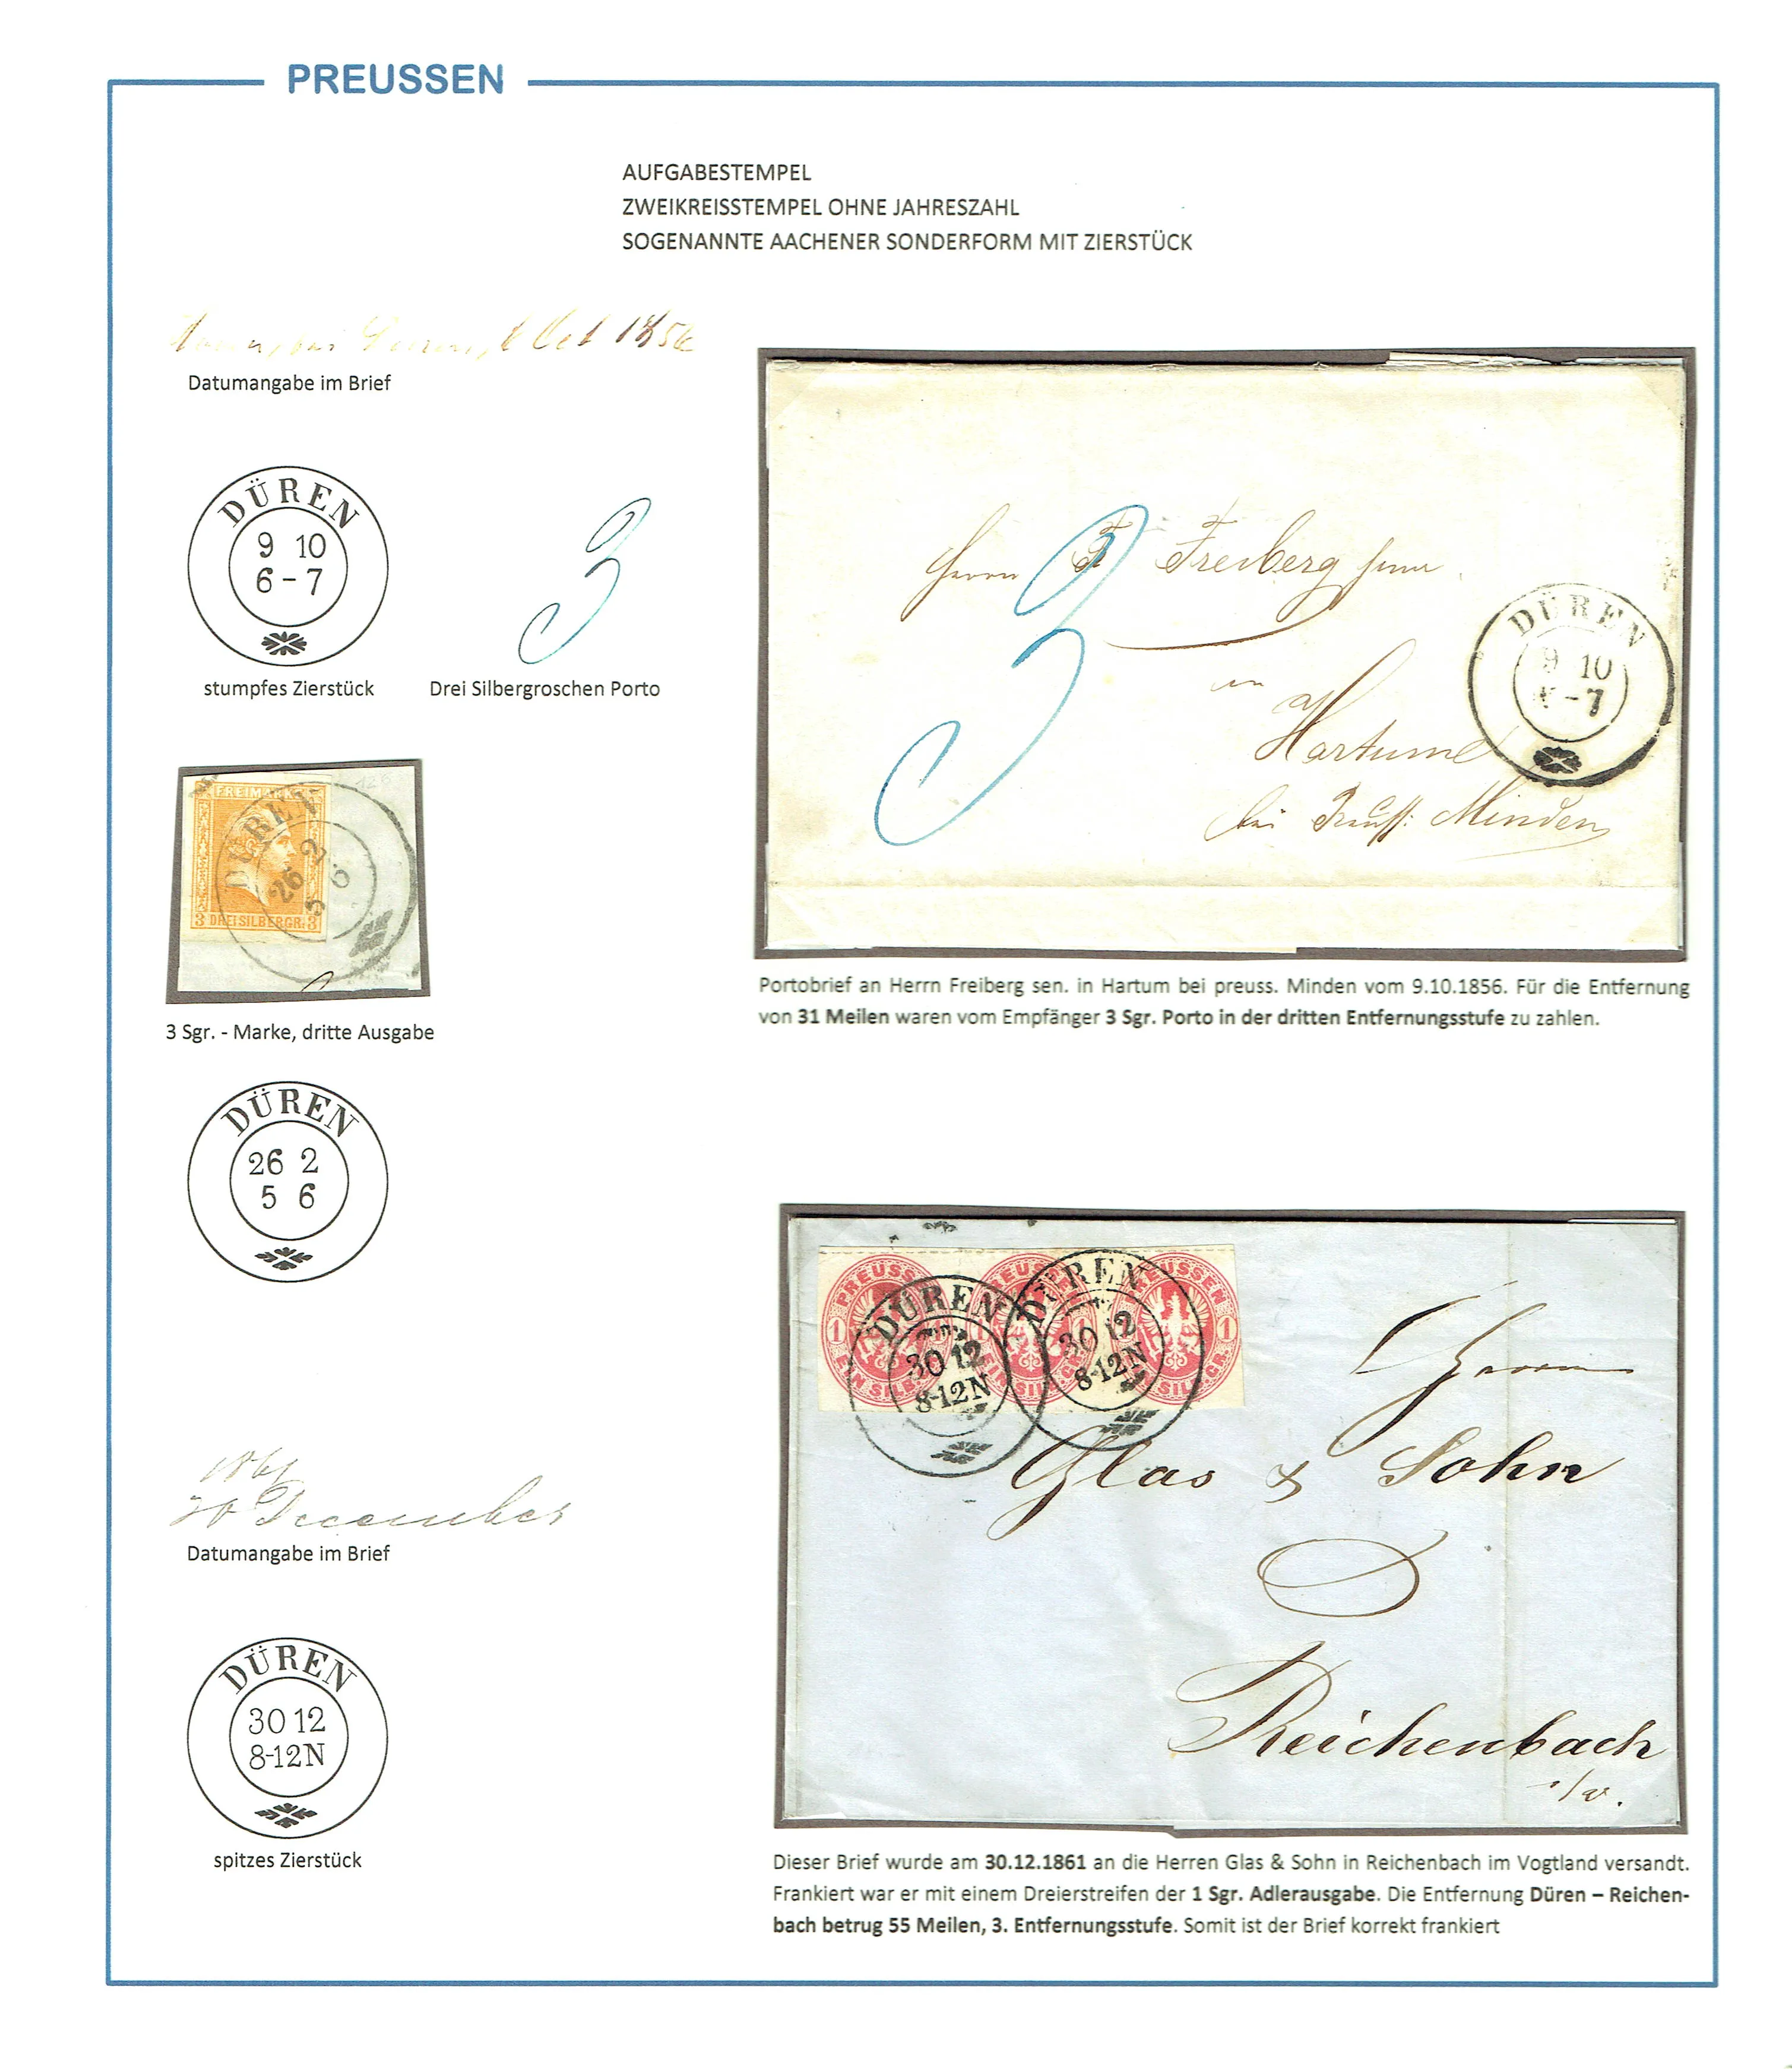 PREUSSEN
AUFGABESTEMPEL
ZWEIKREISSTEMPEL OHNE JAHRESZAHL
SOGENANNTE AACHENER SONDERFORM MIT ZIERSTÜCK
Oct 1856
Datumangabe im Brief
DÜREN
9 10
6 - 7
stumpfes Zierstück
3
Drei Silbergroschen Porto
Herrn F Freiberg senr
3
in
Hartum
bei Preuss: Minden
DÜREN
9 10
- 7
Portobrief an Herrn Freiberg sen. in Hartum bei preuss. Minden vom 9.10.1856. Für die Entfernung
von 31 Meilen waren vom Empfänger 3 Sgr. Porto in der dritten Entfernungsstufe zu zahlen.
FREIMARKE
DÜREN
26 2
5 6
3 DREI SILBERGR. 3
3 Sgr. - Marke, dritte Ausgabe
DÜREN
26 2
5 6
1861
30 December
Datumangabe im Brief
DÜREN
30 12
8-12N
spitzes Zierstück
PREUSSEN
1 EIN SILB.GR. 1
DÜREN
30 12
8-12N
DÜREN
30 12
8-12N
Herrn
Glas & Sohn
Reichenbach
i/v.
Dieser Brief wurde am 30.12.1861 an die Herren Glas & Sohn in Reichenbach im Vogtland versandt.
Frankiert war er mit einem Dreierstreifen der 1 Sgr. Adlerausgabe. Die Entfernung Düren – Reichen-
bach betrug 55 Meilen, 3. Entfernungsstufe. Somit ist der Brief korrekt frankiert